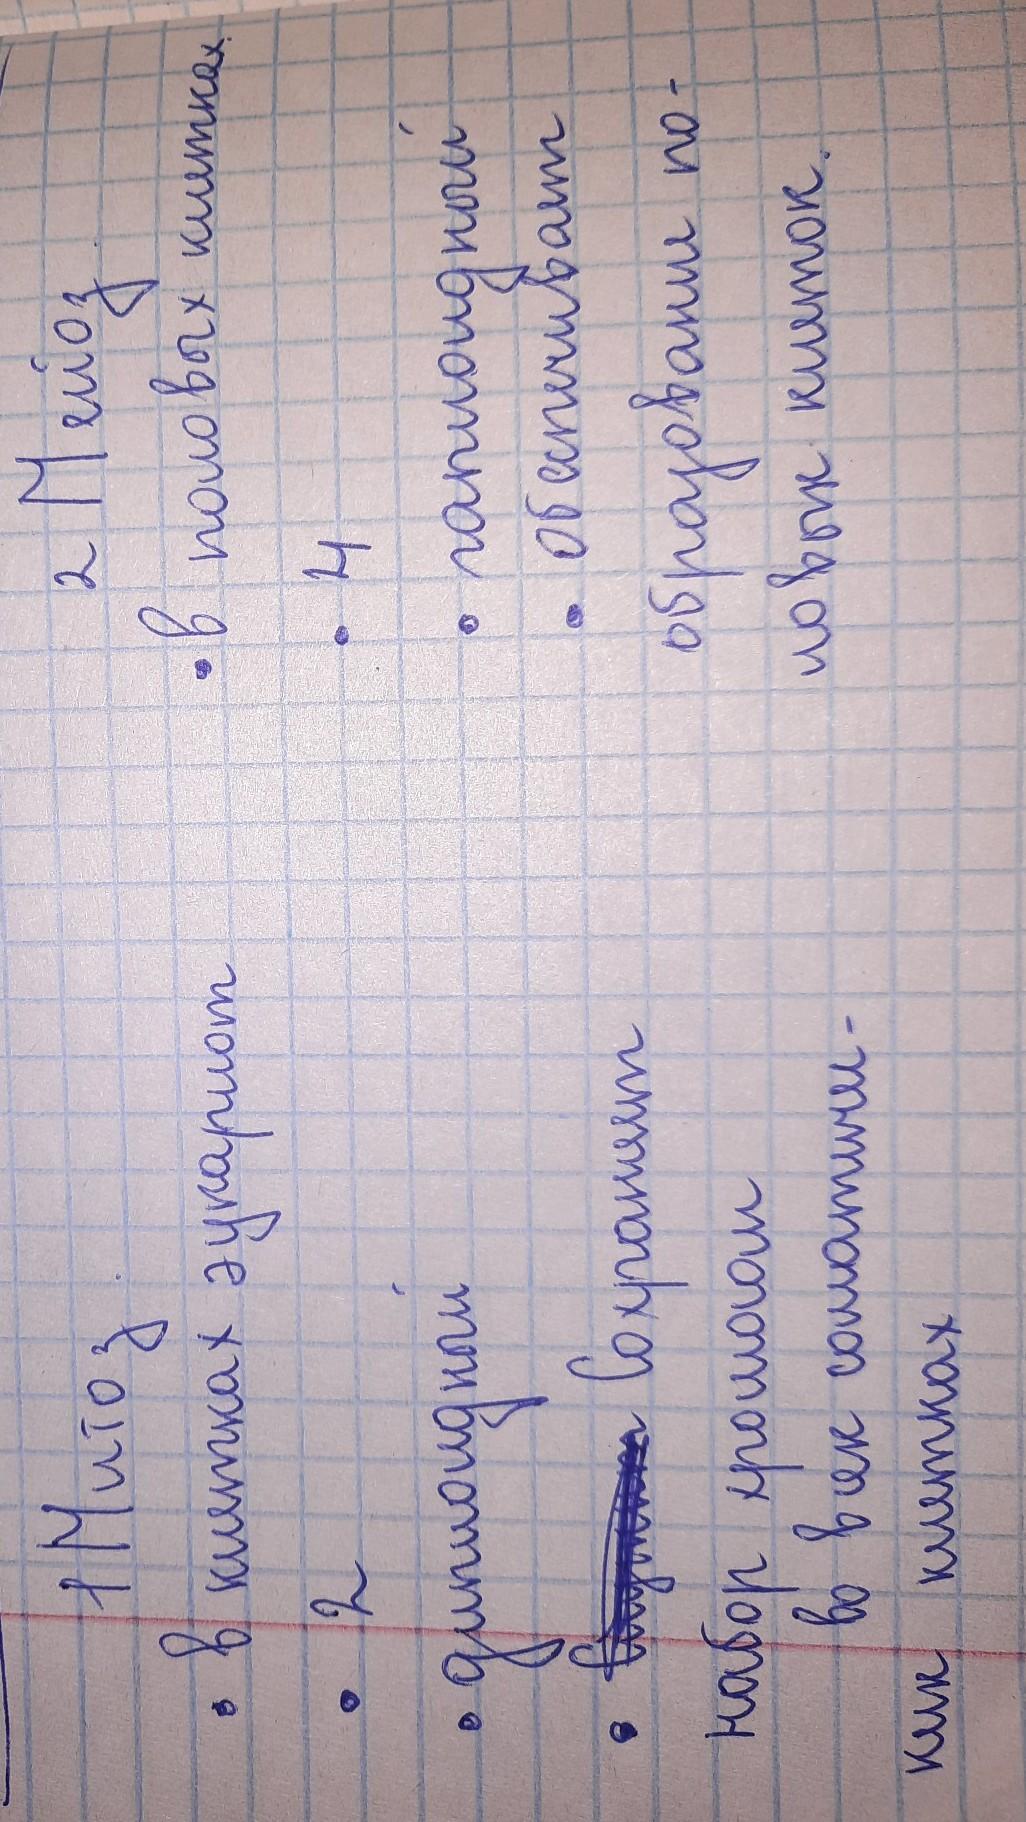 1 Митоз
• в клетках эукариот
• 2
• диплоидный
• Сохраняет
набор хромосом
во всех соматичес-
ких клетках
2 Мейоз
• в половых клетках
• 4
• гаплоидный
• обеспечивает
образование по-
ловых клеток.